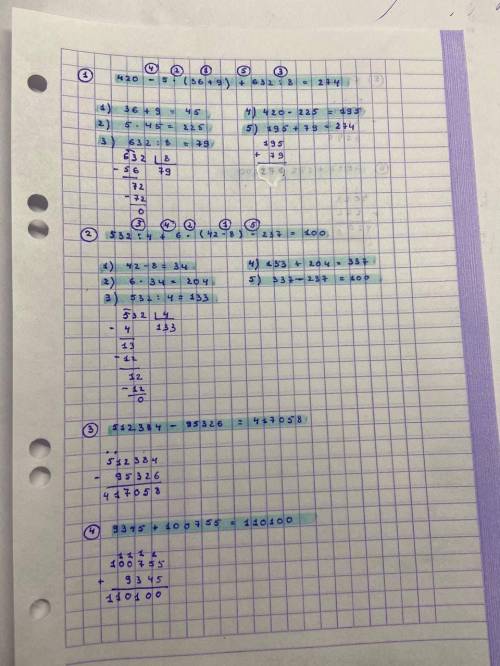 ④ ② ① ⑤ ③
① 420 - 5 · (36+9) + 632 : 8 = 274
1) 36 + 9 = 45
4) 420 - 225 = 195
2) 5 · 45 = 225
5) 195 + 79 = 274
3) 632 : 8 = 79
195
+ 79
274
632 8
- 56 79
72
- 72
0
③ ④ ② ① ⑤
② 532 : 4 + 6 · (42 - 8) - 237 = 100
1) 42 - 8 = 34
4) 133 + 204 = 337
2) 6 · 34 = 204
5) 337 - 237 = 100
3) 532 : 4 = 133
532 4
- 4 133
13
- 12
12
- 12
0
③ 512384 - 95326 = 417058
. .
512384
- 95326
417058
④ 9345 + 100755 = 110100
1 1 1 1
100755
+ 9345
110100